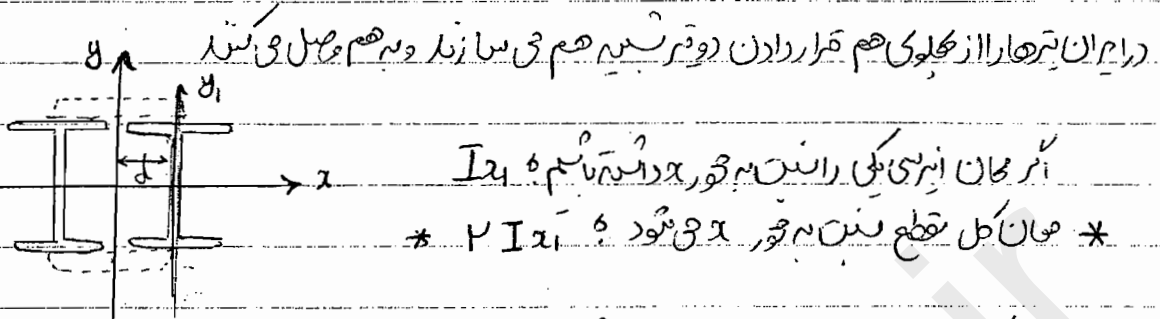 در ایران تیرها را از پهلوی هم قرار دادن دو تیر شبیه هم می سازند و به هم وصل می کنند
y
y₁
d
x
اگر ممان اینرسی یکی را نسبت به محور x داشته باشیم : Ix₁
* ممان کل مقطع نسبت به محور x می شود : ۲Ix₁ *